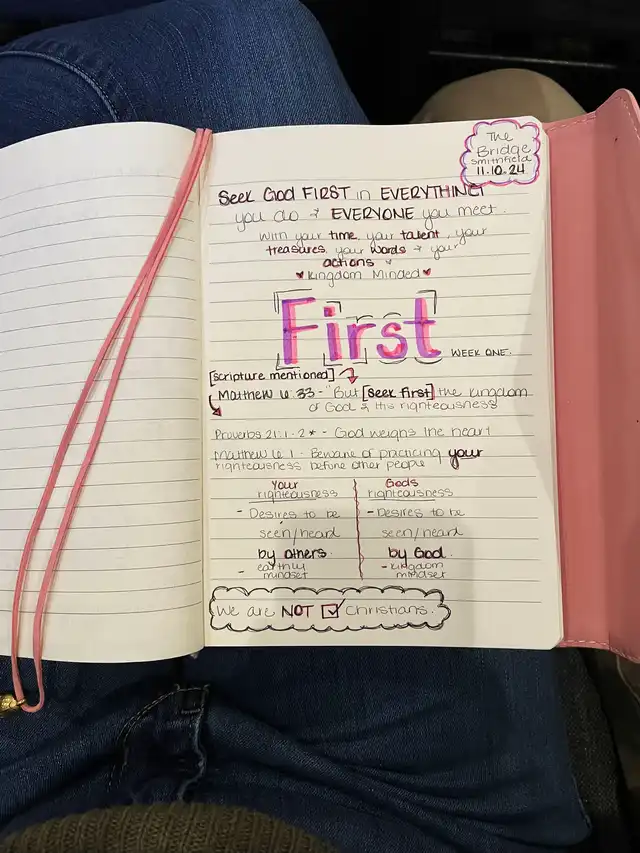 The
Bridge
Smithfield
11.10.24
Seek God FIRST in EVERYTHING
you do & EVERYONE you meet.
With your time, your talent, your
treasures, your words & your
actions
Kingdom Minded
First
WEEK ONE.
[scripture mentioned]
Matthew 6:33 - "But [seek first] the kingdom
of God & His righteousness"
Proverbs 21:1-2* - God weighs the heart
Matthew 6:1 - Beware of practicing your
righteousness before other people
Your Gods
righteousness righteousness
- Desires to be - Desires to be
seen/heard seen/heard
by others. by God.
- earthly - kingdom
mindset mindset
We are NOT ☑ Christians.